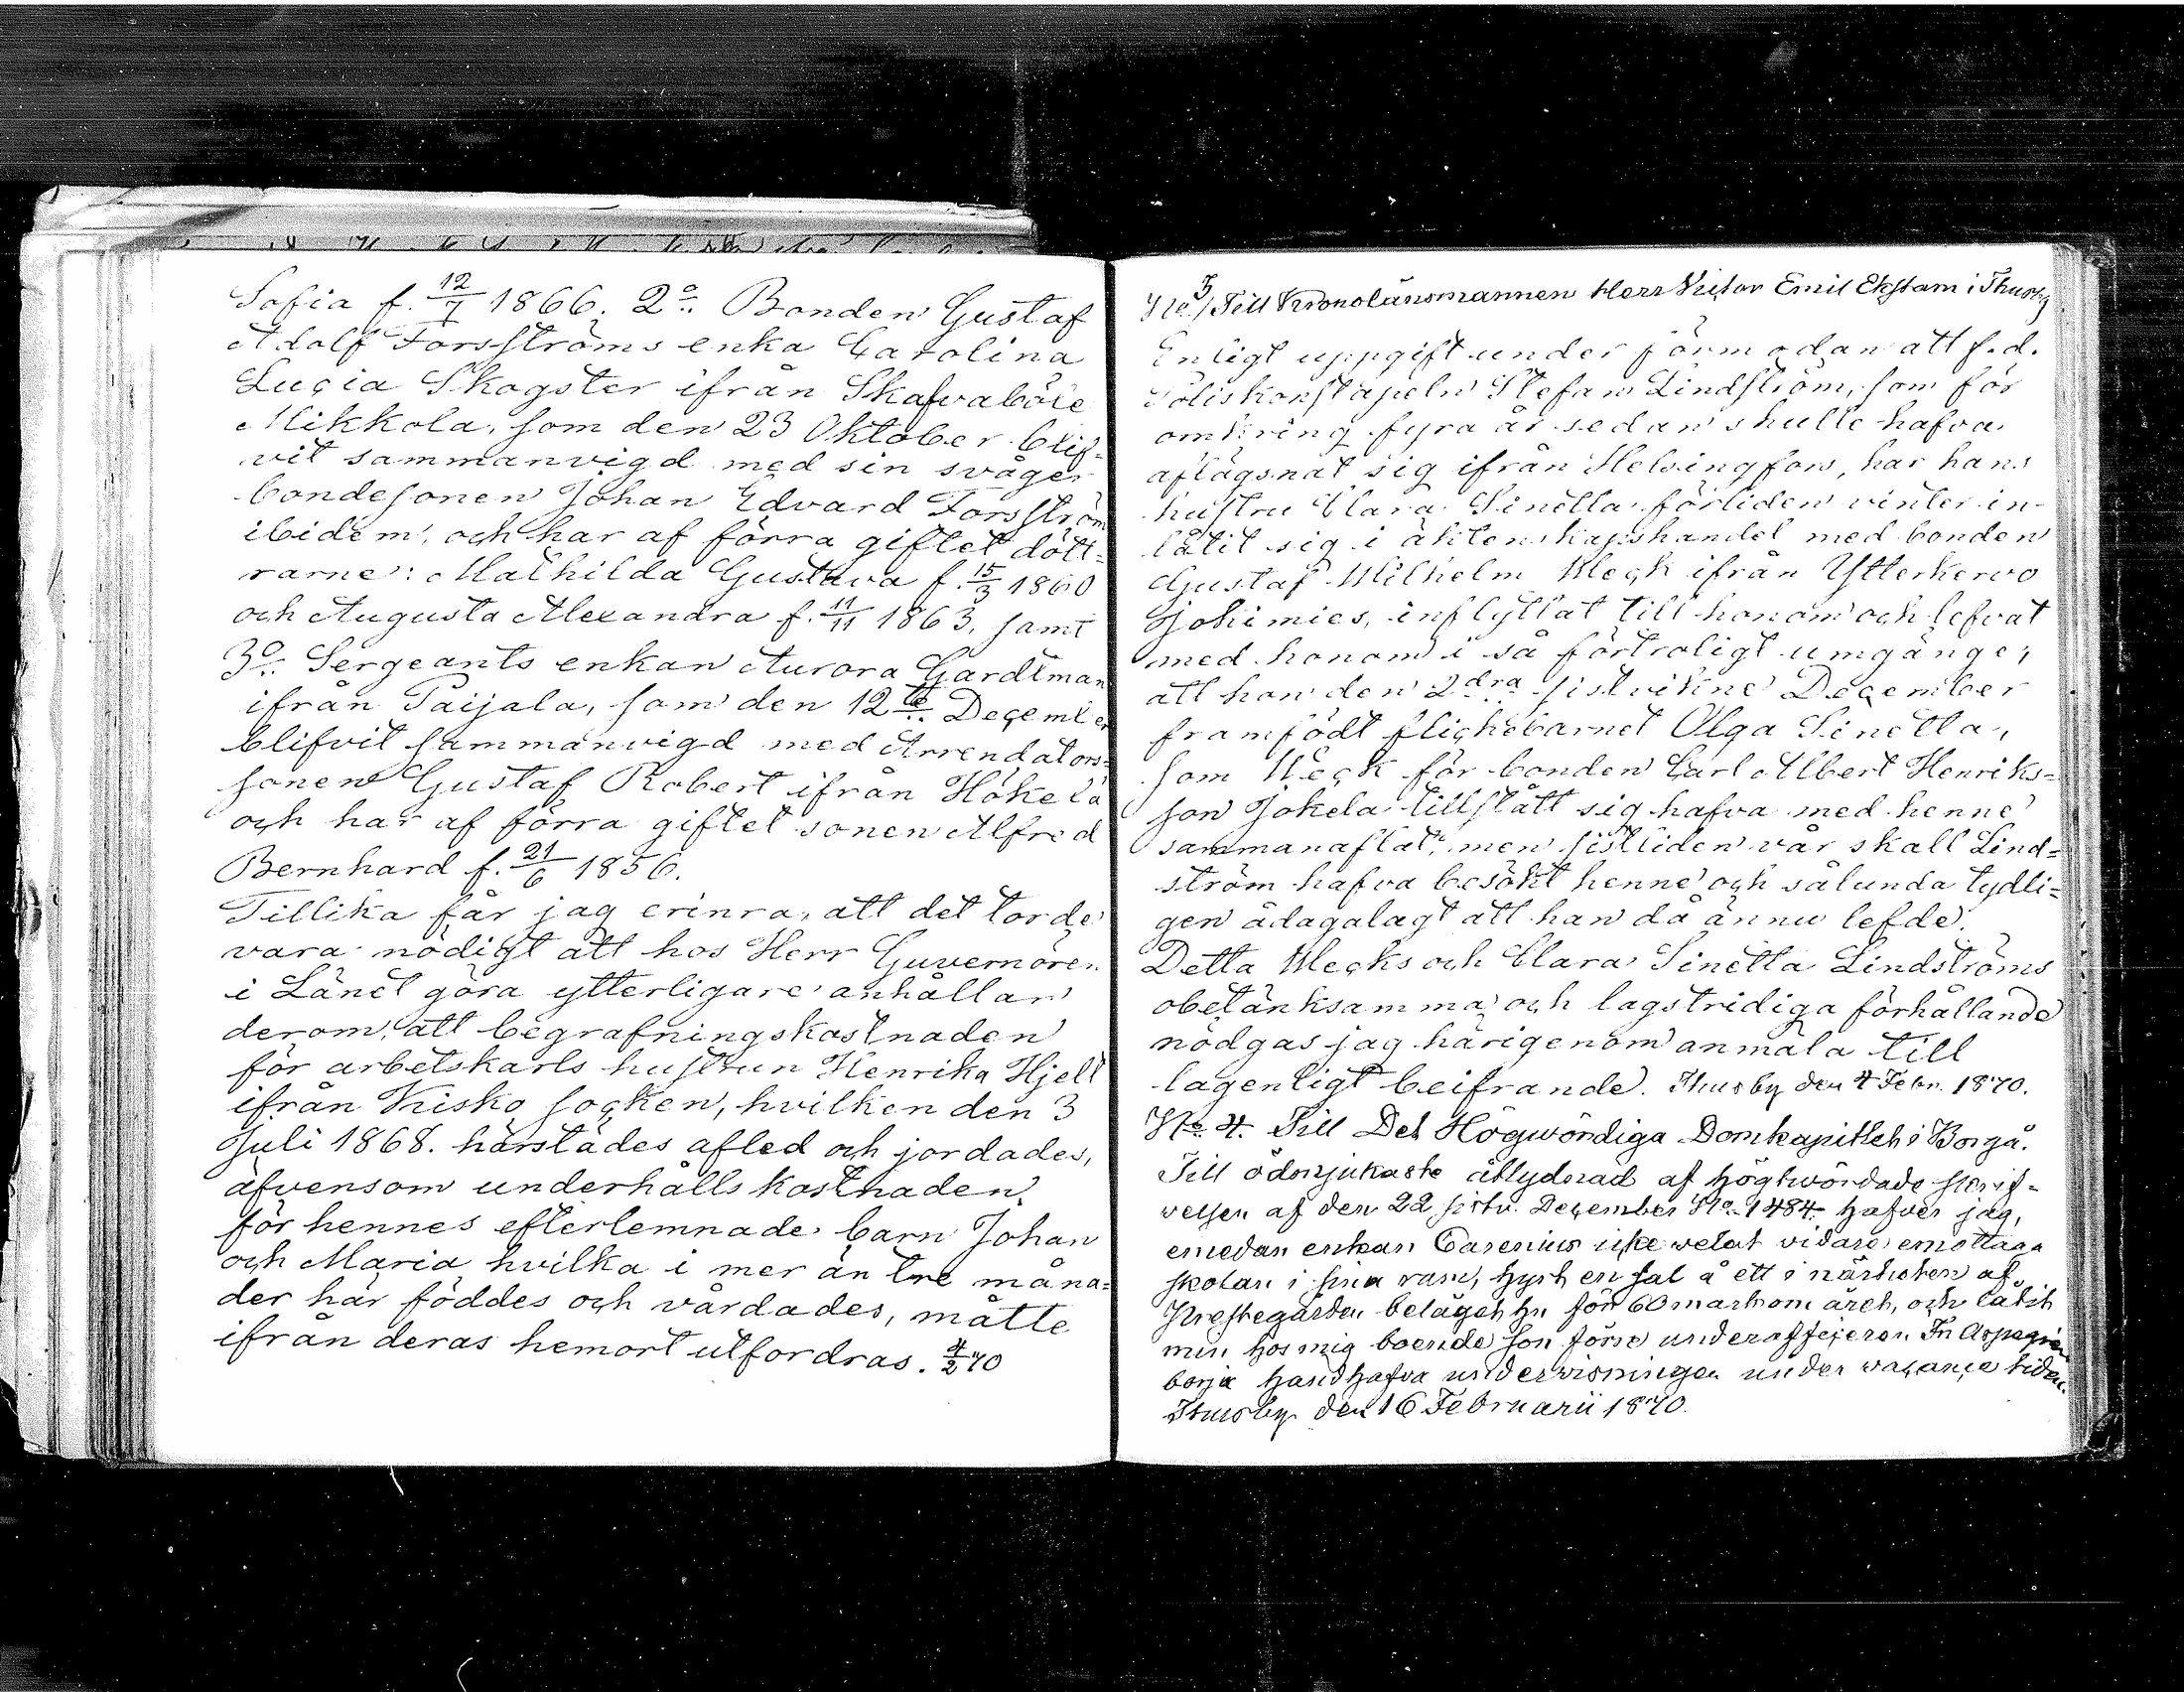 Sofia f. 12/7 1866. 2o. Bonden Gustaf
Adolf Forsströms enka Carolina
Lucia Skogster ifrån Skafvaböle
Mikkola, som den 23 Oktober blif-
vit sammanvigd med sin svåger
bondesonen Johan Edvard Forsström
ibidem, och har af förra giftet dött-
rarne: Mathilda Gustava f. 15/3 1860
och Augusta Alexandra f. 11/11 1863, samt
3o. Sergeants enkan Aurora Gardtman
ifrån Paijala, som den 12te December
blifvit sammanvigd med Arrendators-
sonen Gustaf Robert ifrån Hökelä
och har af förra giftet sonen Alfred
Bernhard f. 21/6 1856.
Tillika får jag erinra, att det torde
vara nödigt att hos Herr Guvernören
i Länet göra ytterligare anhållan
derom, att begrafningskostnaden
för arbetskarls hustrun Henrika Hjelt
ifrån Kisko socken, hvilken den 3
Juli 1868. härstädes afled och jordades,
äfvensom underhållskostnaden
för hennes efterlemnade barn Johan
och Maria hvilka i mer än tre måna-
der här föddes och vårdades, måtte
ifrån deras hemort utfordras. 4/2 70
No 3/ Till Kronolänsmannen Herr Victor Emil Ekstam i Thusby
Enligt uppgift under förmodan att f.d.
Poliskonstapeln Stefan Lindström, som för
omkring fyra år sedan skulle hafva
aflägsnat sig ifrån Helsingfors, har hans
hustru Clara Sinetta förliden vinter in-
låtit sig i äktenskapshandel med bonden
Gustaf Wilhelm Weck ifrån Ytterkervo
Jokimies, inflyttat till honom och lefvat
med honom i så förtroligt umgänge,
att hon den 2dra sistvikne December
framfödt flickebarnet Olga Sinetta,
som Weck för bonden Carl Albert Henriks-
son Jokela tillstått sig hafva med henne
sammanaflat; men sistliden vår skall Lind-
ström hafva besökt henne och sålunda tydli-
gen ådagalagt att han då ännu lefde.
Detta Wecks och Clara Sinetta Lindströms
obetänksamma och lagstridiga förhållande
nödgas jag härigenom anmäla till
lagenligt beifrande. Thusby den 4 Febr. 1870.
No 4. Till Det Högwördiga Domkapitlet i Borgå.
Till ödmjukaste åtlydnad af Högtwördade skrif-
velsen af den 22 sistv. December No 1484. hafver jag,
emedan enkan Carenius icke welat vidare emottaga
skolan i sina rum, hyrt en sal å ett i närheten af
Prestegården beläget hu för 60 mark om året, och låtit
min hos mig boende son förre underofficeren Fr Aspegren
börja handhafva undervisningen under vacance tiden.
Thusby den 16 Februarii 1870.